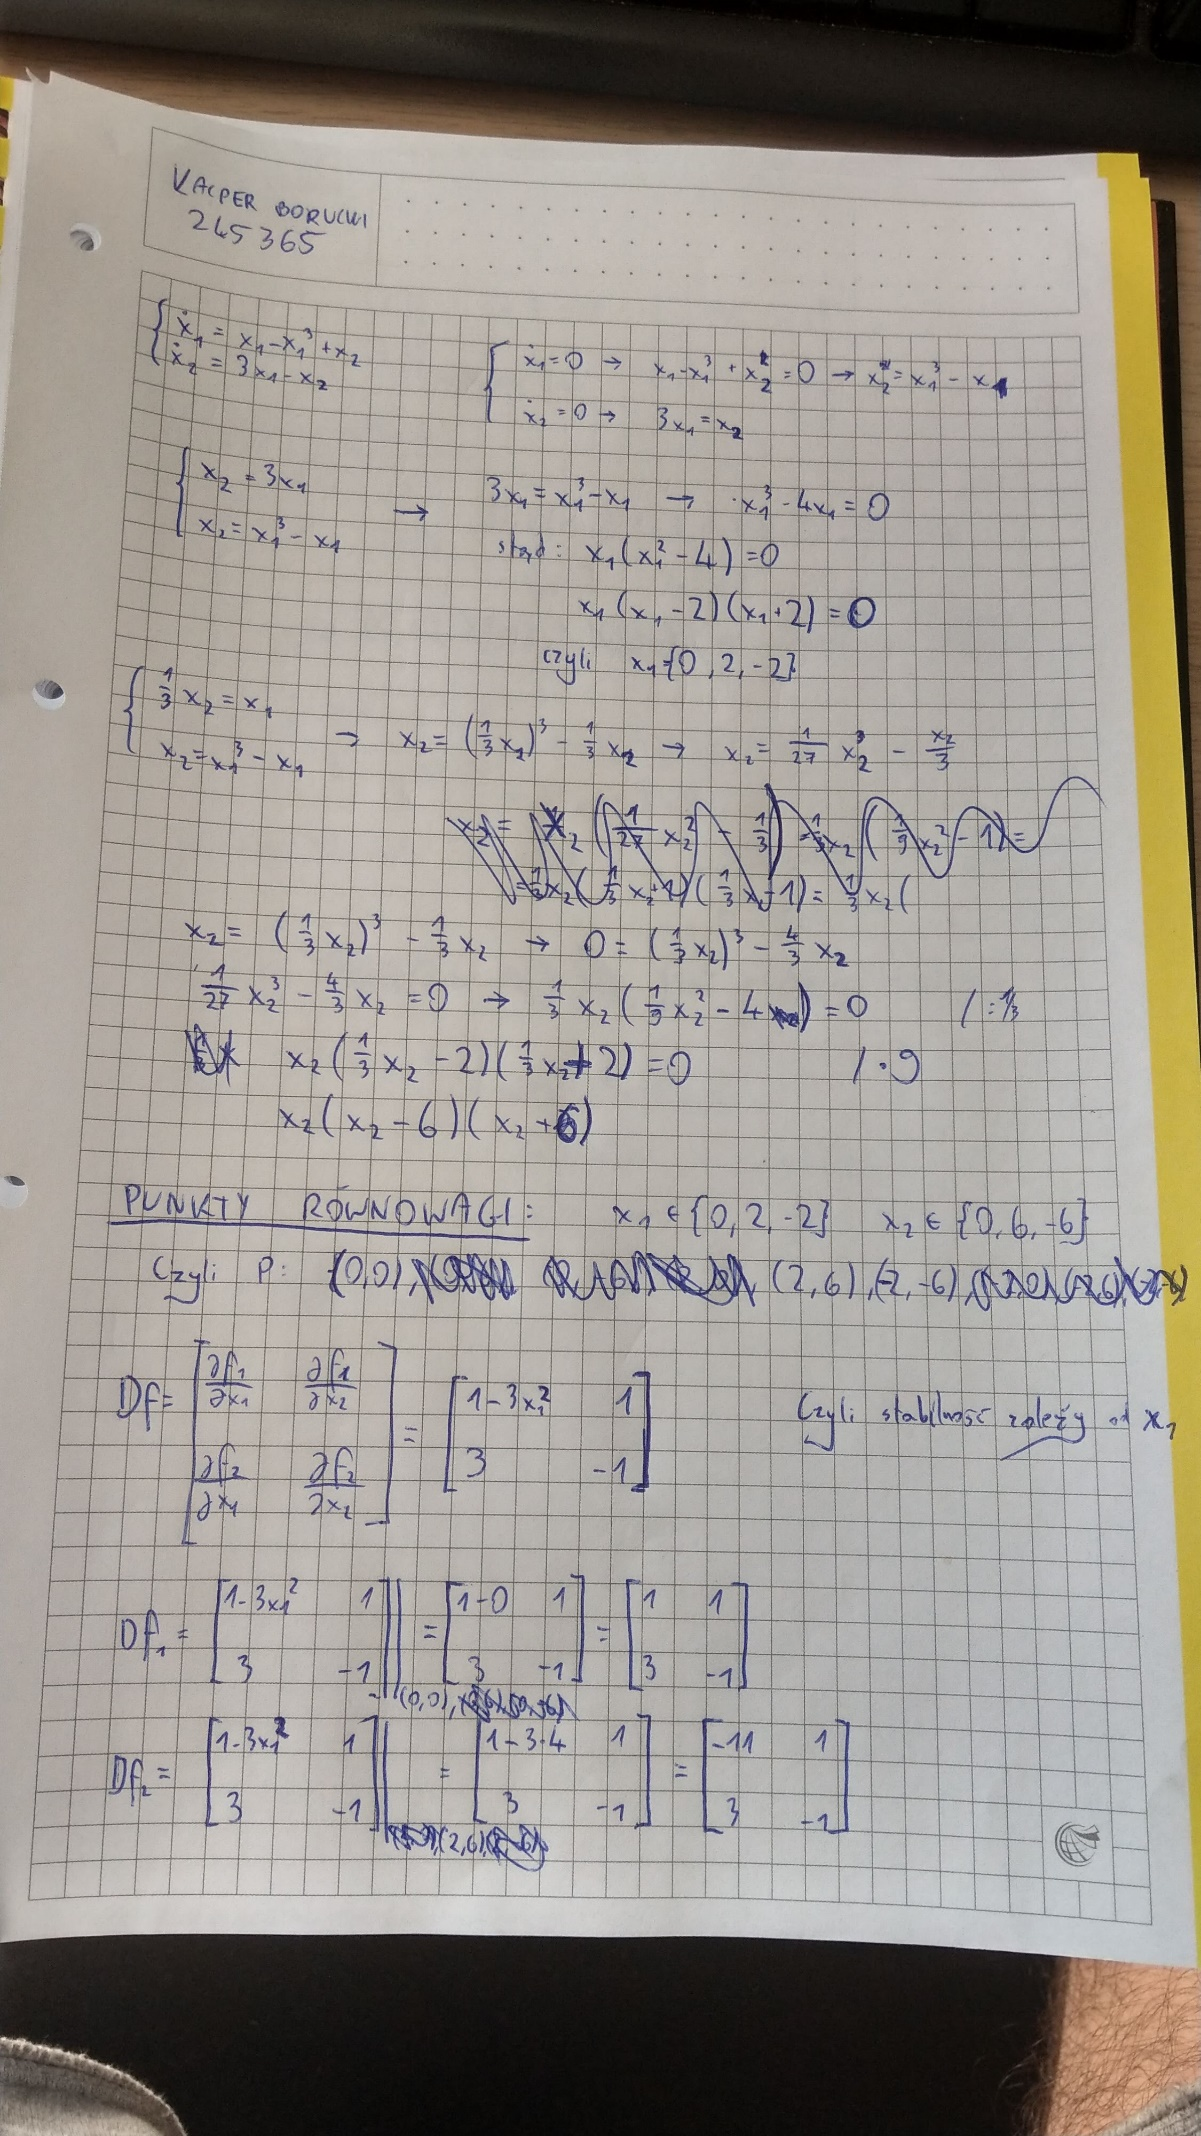 KACPER BORUCKI
245365
{ ẋ₁ = x₁ - x₁³ + x₂
ẋ₂ = 3x₁ - x₂
{ ẋ₁ = 0 → x₁ - x₁³ + x₂ = 0 → x₂ = x₁³ - x₁
ẋ₂ = 0 → 3x₁ = x₂
{ x₂ = 3x₁
x₂ = x₁³ - x₁
→ 3x₁ = x₁³ - x₁ → x₁³ - 4x₁ = 0
stąd: x₁(x₁² - 4) = 0
x₁(x₁ - 2)(x₁ + 2) = 0
czyli x₁ {0, 2, -2}
{ 1/3 x₂ = x₁
x₂ = x₁³ - x₁
→ x₂ = (1/3 x₂)³ - 1/3 x₂ → x₂ = 1/27 x₂³ - x₂/3
x₂ = x₂(1/27 x₂² - 1/3) = 1/3 x₂(1/9 x₂² - 1) =
= 1/3 x₂(1/3 x₂ + 1)(1/3 x₂ - 1) = 1/3 x₂(
x₂ = (1/3 x₂)³ - 1/3 x₂ → 0 = (1/3 x₂)³ - 4/3 x₂
1/27 x₂³ - 4/3 x₂ = 0 → 1/3 x₂(1/9 x₂² - 4) = 0 /: 1/3
x₂(1/3 x₂ - 2)(1/3 x₂ + 2) = 0 / · 9
x₂(x₂ - 6)(x₂ + 6)
PUNKTY RÓWNOWAGI: x₁ ∈ {0, 2, -2} x₂ ∈ {0, 6, -6}
Czyli P: (0,0), (2,6), (-2,-6),
Df = [∂f₁/∂x₁ ∂f₁/∂x₂
∂f₂/∂x₁ ∂f₂/∂x₂] = [1-3x₁² 1
3 -1]
Czyli stabilność zależy od x₁
Df₁ = [1-3x₁² 1
3 -1] | (0,0), = [1-0 1
3 -1] = [1 1
3 -1]
Df₂ = [1-3x₁² 1
3 -1] | (2,6), = [1-3·4 1
3 -1] = [-11 1
3 -1]